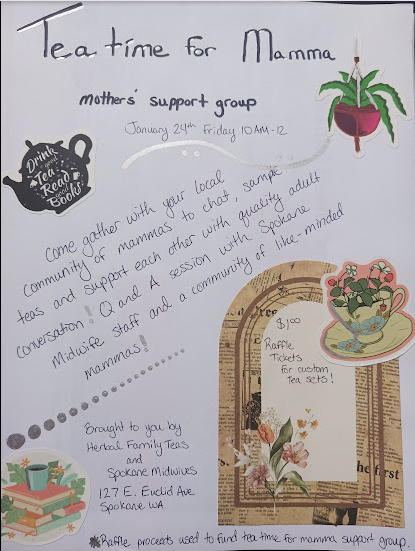 Tea time for Mamma
mothers' support group
January 24th Friday 10AM-12
Drink
good
Tea
Read
good
Books
Come gather with your local
community of mammas to chat, sample
teas and support each other with quality adult
conversation! Q and A session with Spokane
Midwife staff and a community of like-minded
mammas!
$1.00
Raffle
Tickets
for custom
tea sets!
the first
Brought to you by
Herbal Family Teas
and
Spokane Midwives
127 E. Euclid Ave
Spokane WA
*Raffle proceeds used to fund tea time for mamma support group.